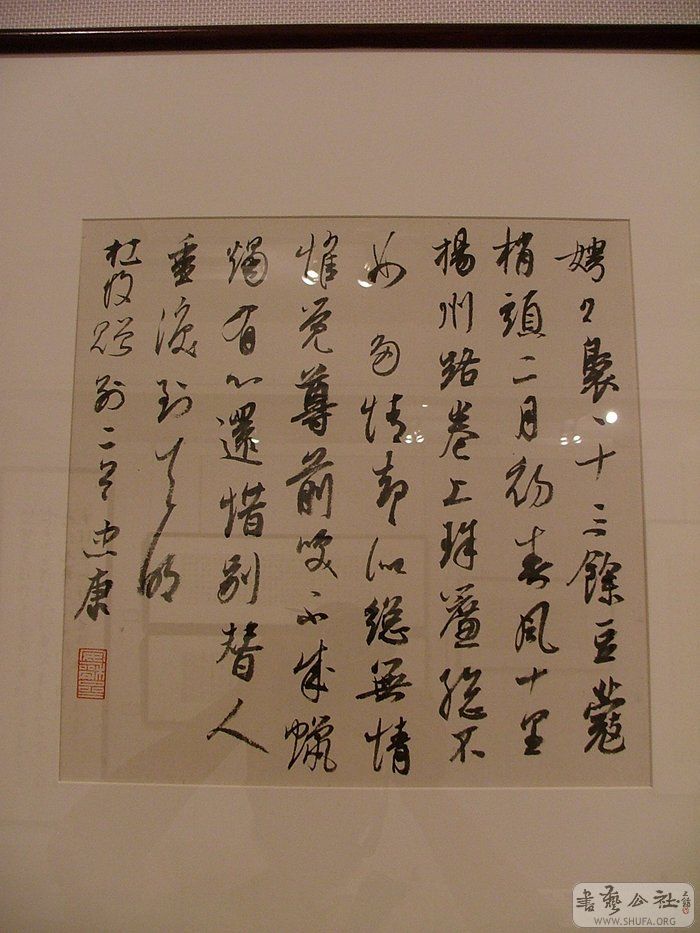 娉〻裊〻十三餘豆蔻
梢頭二月初春風十里
揚州路卷上珠簾總不
如 多情却似總無情
惟覺尊前笑不成蠟
燭有心還惜別替人
垂淚到天明
杜牧贈別二首 忠康
書藝公社
WWW.SHUFA.ORG